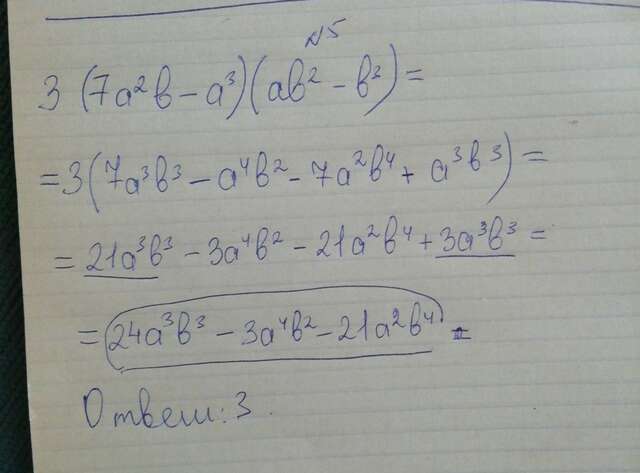 №5
3 (7a²b - a³)(ab² - b³) =
= 3(7a³b³ - a⁴b² - 7a²b⁴ + a³b³) =
= 21a³b³ - 3a⁴b² - 21a²b⁴ + 3a³b³ =
= 24a³b³ - 3a⁴b² - 21a²b⁴
Ответ: 3.